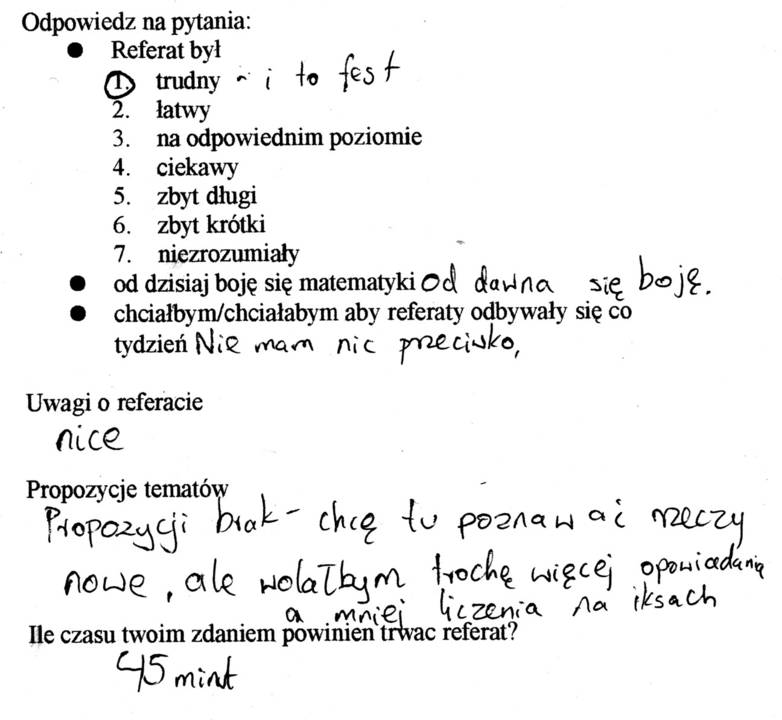 Odpowiedz na pytania:
● Referat był
1. trudny ~ i to fest
2. łatwy
3. na odpowiednim poziomie
4. ciekawy
5. zbyt długi
6. zbyt krótki
7. niezrozumiały
● od dzisiaj boję się matematyki Od dawna się boję.
● chciałbym/chciałabym aby referaty odbywały się co
tydzień Nie mam nic przeciwko,
Uwagi o referacie
nice
Propozycje tematów
Propozycji brak - chcę tu poznawać rzeczy
nowe, ale wolałbym trochę więcej opowiadania
a mniej liczenia na iksach
Ile czasu twoim zdaniem powinien trwac referat?
45 mint